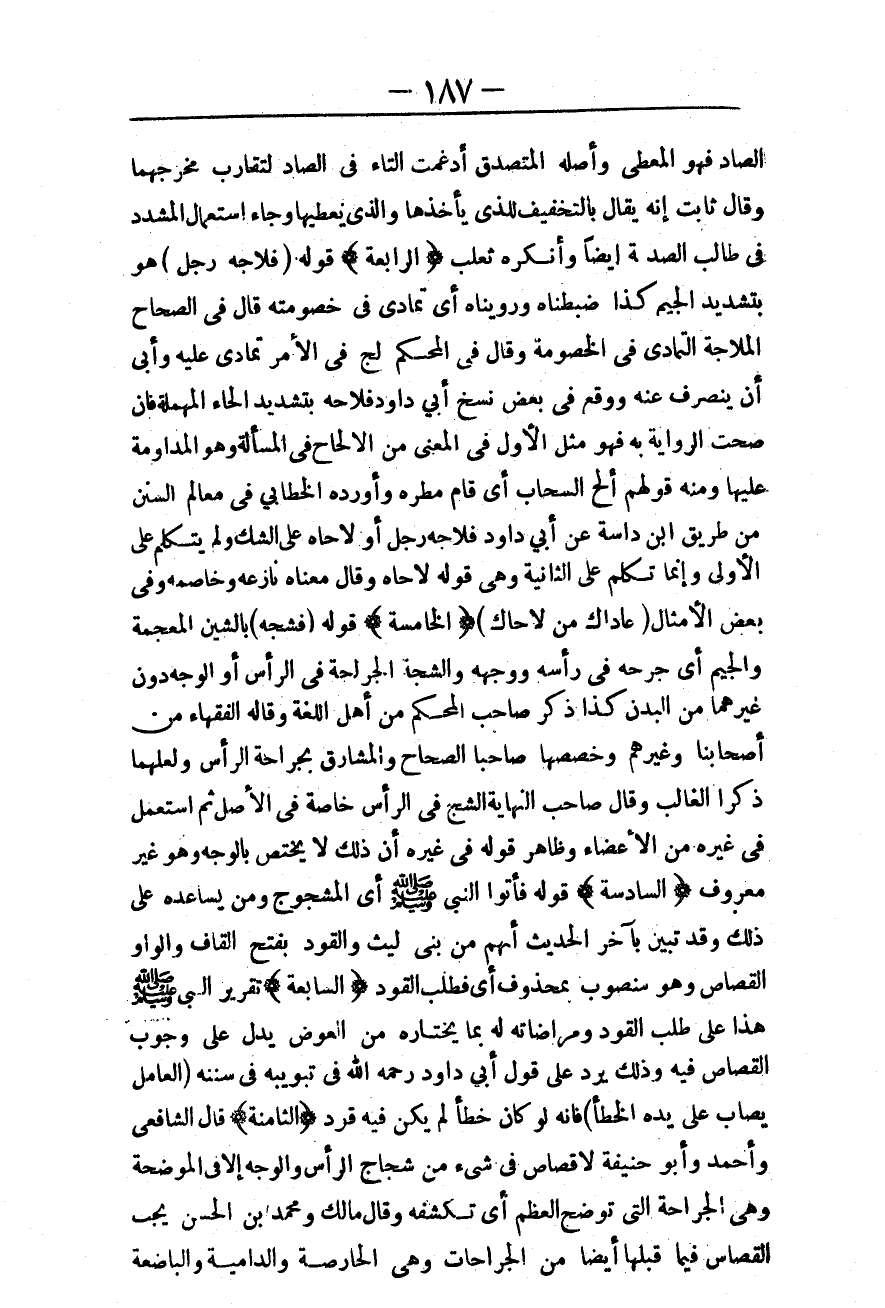 — ١٨٧ —
الصاد فهو المعطى وأصله المتصدق أدغمت التاء فى الصاد لتقارب مخرجهما
وقال ثابت إنه يقال بالتخفيف للذى يأخذها والذى يعطيها وجاء استعمال المشدد
فى طالب الصد ة ايضاً وأنكره ثعلب ﴿ الرابعة ﴾ قوله ( فلاجه رجل ) هو
بتشديد الجيم كذا ضبطناه ورويناه أى تمادى فى خصومته قال فى الصحاح
الملاجة التمادى فى الخصومة وقال فى المحكم لج فى الأمر تمادى عليه وأبى
أن ينصرف عنه ووقع فى بعض نسخ أبي داود فلاحه بتشديد الحاء المهملة فان
صحت الرواية به فهو مثل الأول فى المعنى من الالحاح فى المسألة وهو المداومة
عليها ومنه قولهم ألح السحاب أى قام مطره وأورده الخطابي فى معالم السنن
من طريق ابن داسة عن أبي داود فلاجه رجل أو لاحاه على الشك ولم يتكلم على
الأولى وإنما تكلم على الثانية وهى قوله لاحاه وقال معناه نازعه وخاصمه وفى
بعض الأمثال ( عاداك من لاحاك ) ﴿ الخامسة ﴾ قوله ( فشجه ) بالشين المعجمة
والجيم أى جرحه فى رأسه ووجهه والشجة الجراحة فى الرأس أو الوجه دون
غيرهما من البدن كذا ذكر صاحب المحكم من أهل اللغة وقاله الفقهاء من
أصحابنا وغيرهم وخصصها صاحبا الصحاح والمشارق بجراحة الرأس ولعلهما
ذكرا الغالب وقال صاحب النهاية الشج فى الرأس خاصة فى الأصل ثم استعمل
فى غيره من الأعضاء وظاهر قوله فى غيره أن ذلك لا يختص بالوجه وهو غير
معروف ﴿ السادسة ﴾ قوله فأتوا النبي ﷺ أى المشجوج ومن يساعده على
ذلك وقد تبين بآخر الحديث أنهم من بنى ليث والقود بفتح القاف والواو
القصاص وهو منصوب بمحذوف أى فطلب القود ﴿ السابعة ﴾ تقرير النبى ﷺ
هذا على طلب القود ومراضاته له بما يختاره من العوض يدل على وجوب
القصاص فيه وذلك يرد على قول أبي داود رحمه الله فى تبويبه فى سننه (العامل
يصاب على يده الخطأ) فانه لو كان خطأ لم يكن فيه قرد ﴿ الثامنة ﴾ قال الشافعى
وأحمد وأبو حنيفة لاقصاص فى شىء من شجاج الرأس والوجه إلا فى الموضحة
وهى الجراحة التى توضح العظم أى تكشفه وقال مالك ومحمد بن الحسن يجب
القصاس فيما قبلها أيضا من الجراحات وهى الحارصة والدامية والباضعة